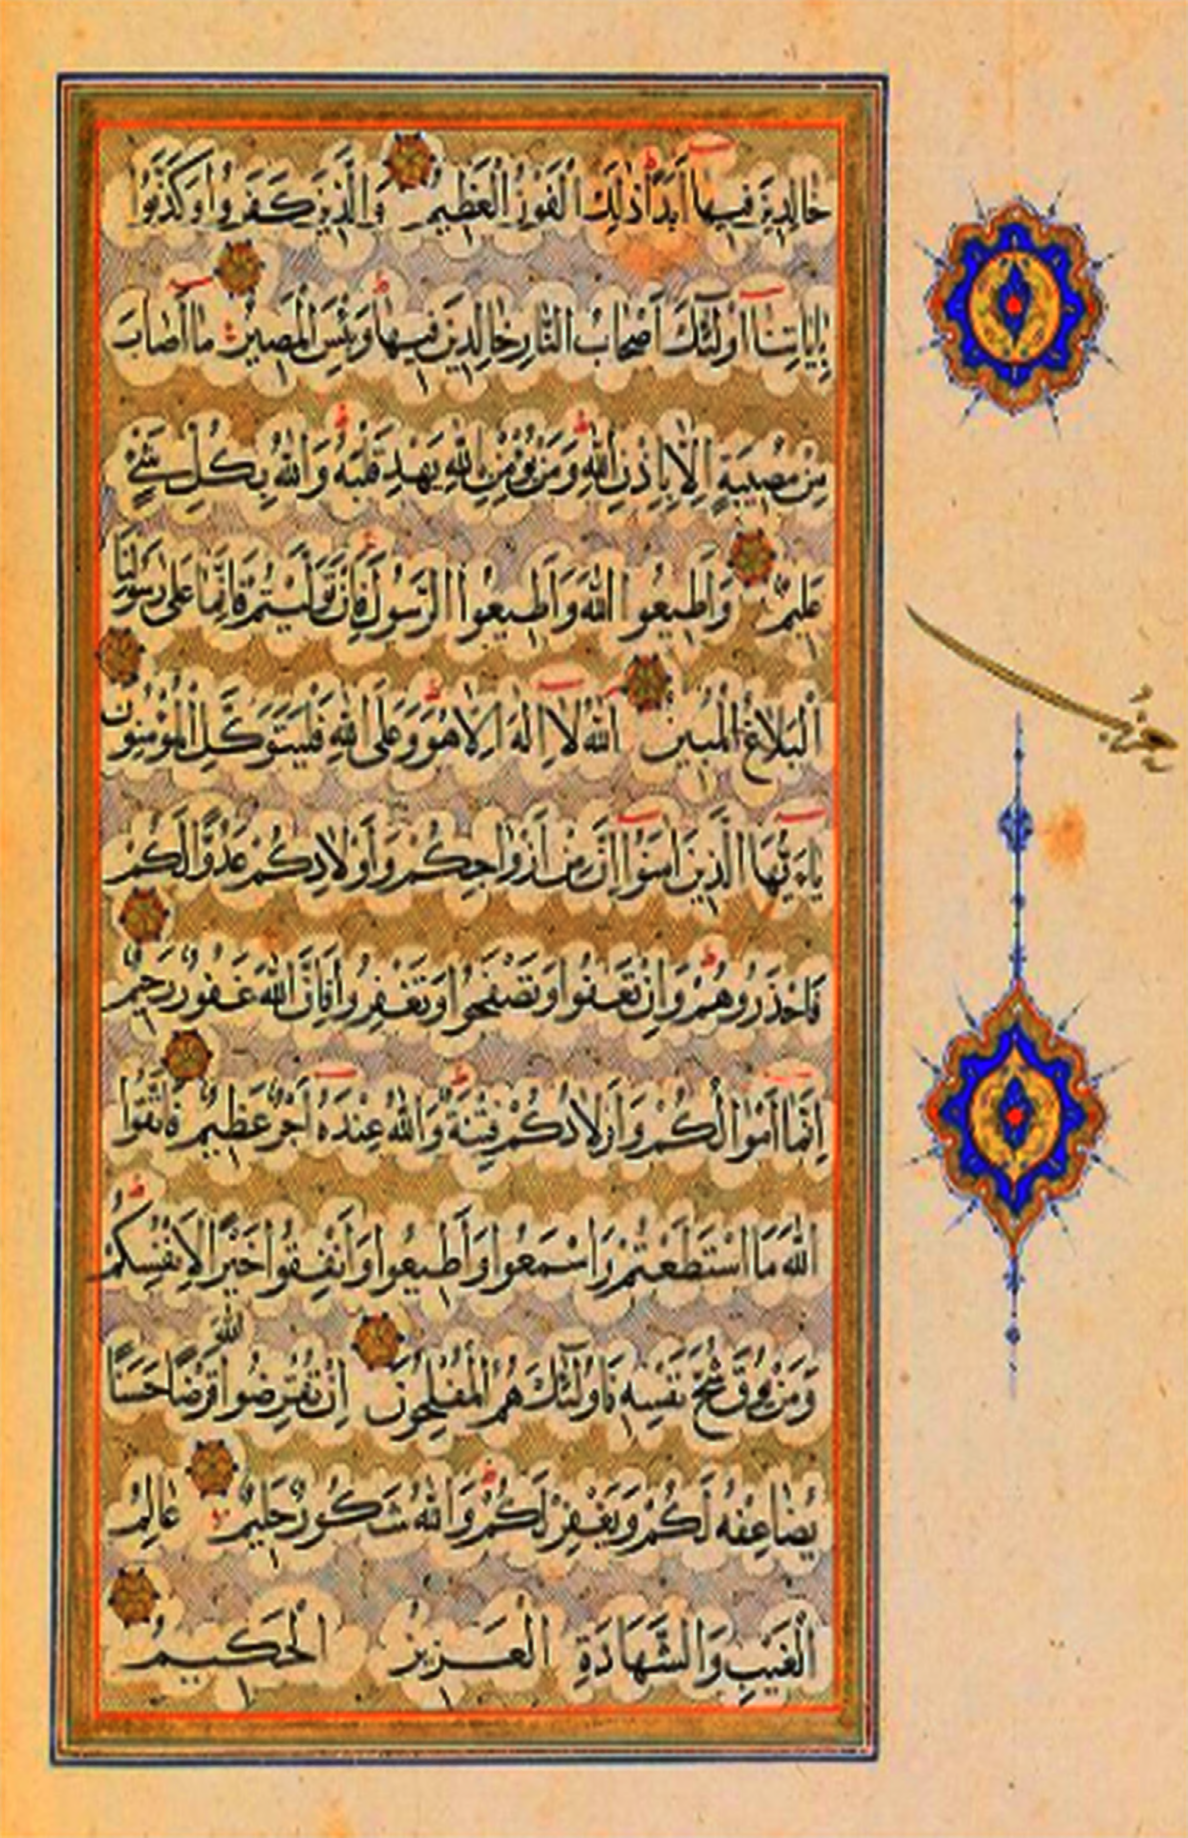 خَالِدِينَ فِيهَا أَبَدًا ذَلِكَ الْفَوْزُ الْعَظِيمُ وَالَّذِينَ كَفَرُوا وَكَذَّبُوا
بِآيَاتِنَا أُولَئِكَ أَصْحَابُ النَّارِ خَالِدِينَ فِيهَا وَبِئْسَ الْمَصِيرُ مَا أَصَابَ
مِنْ مُصِيبَةٍ إِلَّا بِإِذْنِ اللَّهِ وَمَنْ يُؤْمِنْ بِاللَّهِ يَهْدِ قَلْبَهُ وَاللَّهُ بِكُلِّ شَيْءٍ
عَلِيمٌ وَأَطِيعُوا اللَّهَ وَأَطِيعُوا الرَّسُولَ فَإِنْ تَوَلَّيْتُمْ فَإِنَّمَا عَلَى رَسُولِنَا
الْبَلَاغُ الْمُبِينُ اللَّهُ لَا إِلَهَ إِلَّا هُوَ وَعَلَى اللَّهِ فَلْيَتَوَكَّلِ الْمُؤْمِنُونَ
يَاأَيُّهَا الَّذِينَ آمَنُوا إِنَّ مِنْ أَزْوَاجِكُمْ وَأَوْلَادِكُمْ عَدُوًّا لَكُمْ
فَاحْذَرُوهُمْ وَإِنْ تَعْفُوا وَتَصْفَحُوا وَتَغْفِرُوا فَإِنَّ اللَّهَ غَفُورٌ رَحِيمٌ
إِنَّمَا أَمْوَالُكُمْ وَأَوْلَادُكُمْ فِتْنَةٌ وَاللَّهُ عِنْدَهُ أَجْرٌ عَظِيمٌ فَاتَّقُوا
اللَّهَ مَا اسْتَطَعْتُمْ وَاسْمَعُوا وَأَطِيعُوا وَأَنْفِقُوا خَيْرًا لِأَنْفُسِكُمْ
وَمَنْ يُوقَ شُحَّ نَفْسِهِ فَأُولَئِكَ هُمُ الْمُفْلِحُونَ إِنْ تُقْرِضُوا اللَّهَ قَرْضًا حَسَنًا
يُضَاعِفْهُ لَكُمْ وَيَغْفِرْ لَكُمْ وَاللَّهُ شَكُورٌ حَلِيمٌ عَالِمُ
الْغَيْبِ وَالشَّهَادَةِ الْعَزِيزُ الْحَكِيمُ